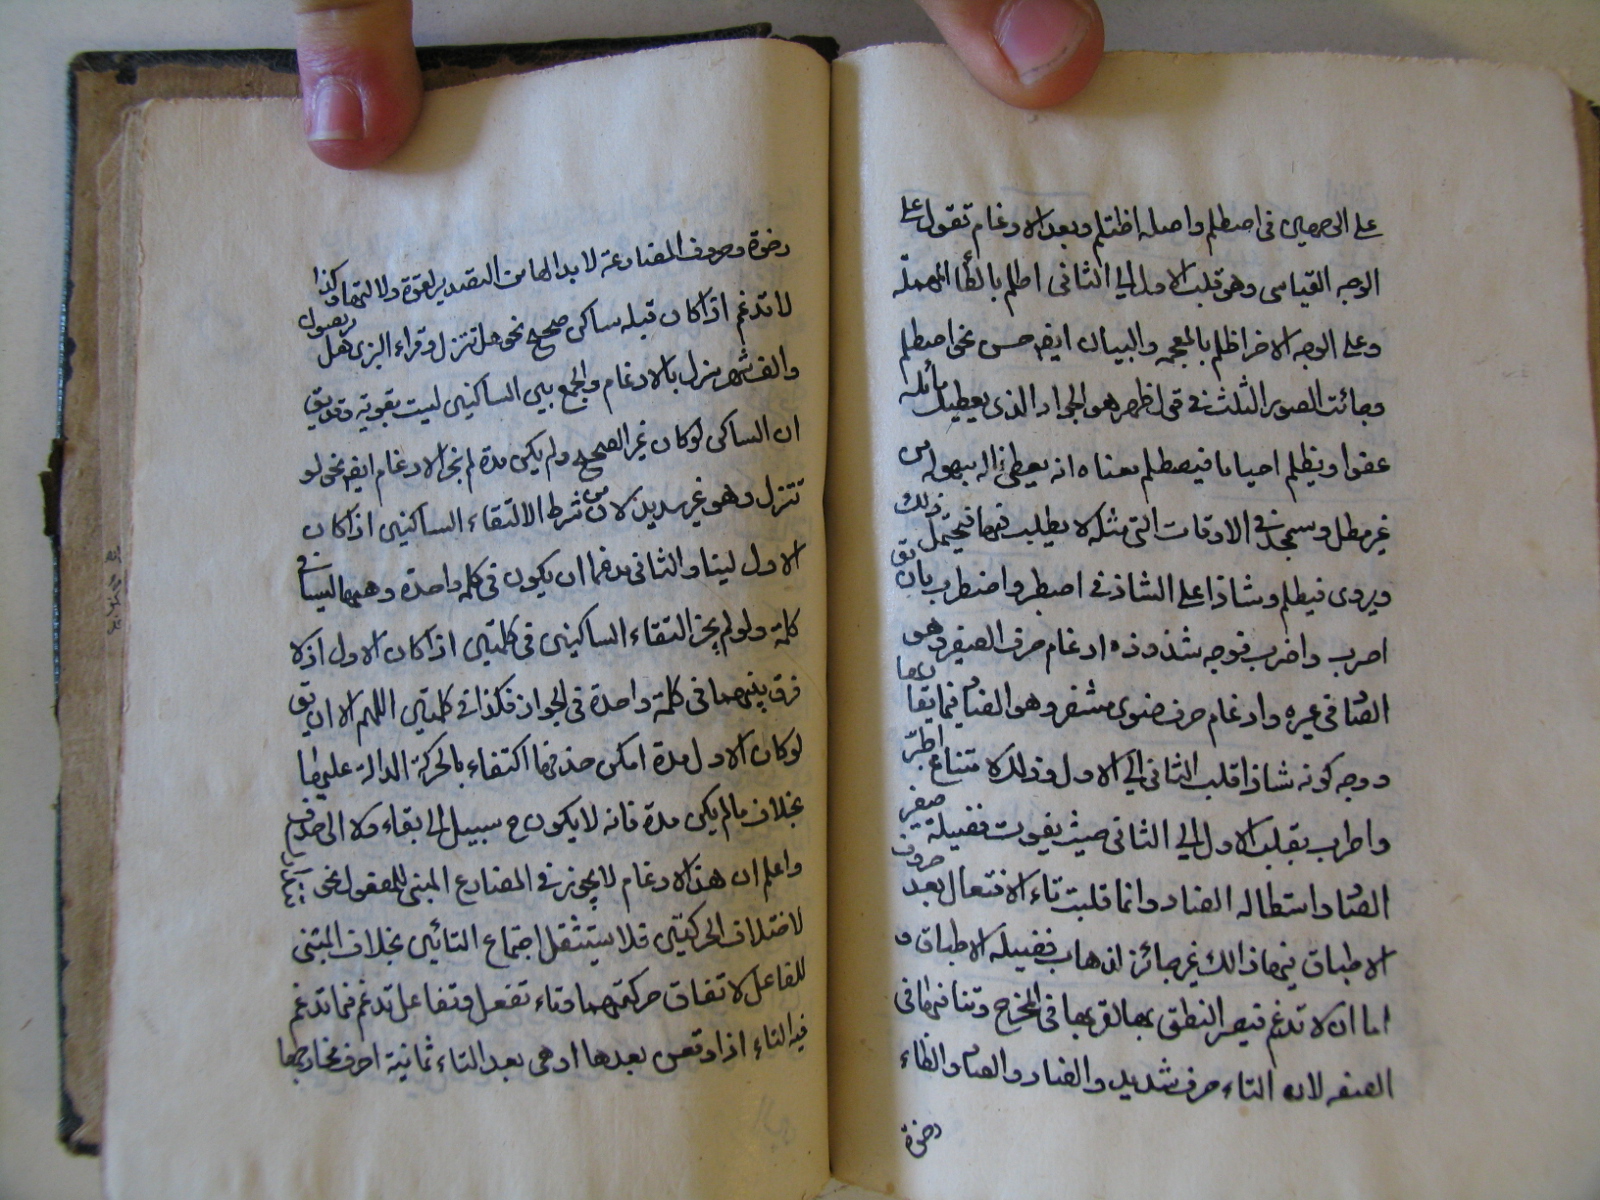 على الوجهين في اصطلم واصله اظتلم وبعد الادغام تقول على
الوجه القياسى وهو قلب الاول الى الثانى اطلم بالطاء المهملة
وعلى الوجه الاخر اظلم بالمعجمة والبيان ايضا حسن نحو اصطلم
وجائت الصور الثلث في قول زهير هو الجواد الذى يعطيك نائله
عفوا ويظلم احيانا فيصطلم معناه انه يعطى ماله بسهولة من
غير مطل وسمجد في الاوقات التى مثله لا يطلب فيها فيحتمل ذلك
ويروى فيطلم وشاذا على الشاذ في اصطبر واضطرب بان يق
اصرب واضرب فوجه شذوذه ادغام حرف الصفير وهو
الصاد في غيره وادغام حرف ضوى مشفر وهو الضاد فيما يقاربها
ووجه كونه شاذا قلب الثانى الى الاول وذلك لامتناع اطبر
واطرب بقلب الاول الى الثانى حيث يفوت فضيلة صفير
الصاد واستطالة الضاد وانما قلبت تاء الافتعال بعد حروف
الاطباق فيها ذالك غير جائز لذهاب فضيلة الاطباق و
اما ان لا تدغم فيعسر النطق بها لقربها في المخرج وتنافيها في
الصفة لان التاء حرف شديد والضاد والصاد والظاء
رخوة
رخوة وحروف المضارعة لا بد لها من التقدير لقوة دلالتها وكذا
لا تدغم اذا كان قبله ساكن صحيح نحو هل تتزل وقراء البزى هل تربصون
والف شهر تنزل بالادغام والجمع بين الساكنين ليست بقوية وقد يق
ان الساكن لو كان غير الصحيح ولم يكن مدة لم نجز الادغام ايضا نحو لو
تتزل وهو غير سديد لان من شرط الالتقاء الساكنين اذا كان
الاول لينا والثانى مدغما ان يكون في كلمة واحدة وهيهنا ليسا في
كلمة ولو لم يجز التقاء الساكنين في كلمتين اذا كان الاول اذ لا
فرق بينهما في كلمة واحدة في الجواز فكذا في كلمتين اللهم الا ان يق
لو كان الاول مدة امكن حذفها اكتفاء بالحركة الدالة عليها
بخلاف مالم يكن مدة فانه لا يكون ح سبيل الى ابقاء ولا الى حذف
واعلم ان هذا الادغام لا يجوز في المضارع المبنى للمفعول نحو
لاختلاف الحركتين فلا يستثقل اجتماع التائين بخلاف المبنى
للفاعل لاتفاق حركتيهما وتاء تفعل وتفاعل تدغم فيما تدغم
فيه التاء اذا وقعن بعدها اوهى بعد التاء ثمانية احرف مخارجها